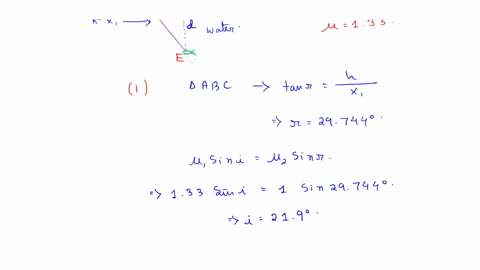 π- x₁ → d water. μ = 1.33.
E
(1) Δ ABC → tan r = h / x₁
⇒ r = 29.744°.
μ₁ Sin i = μ₂ Sin r.
⇒ 1.33 Sin i = 1 Sin 29.744°.
⇒ i = 21.9°.